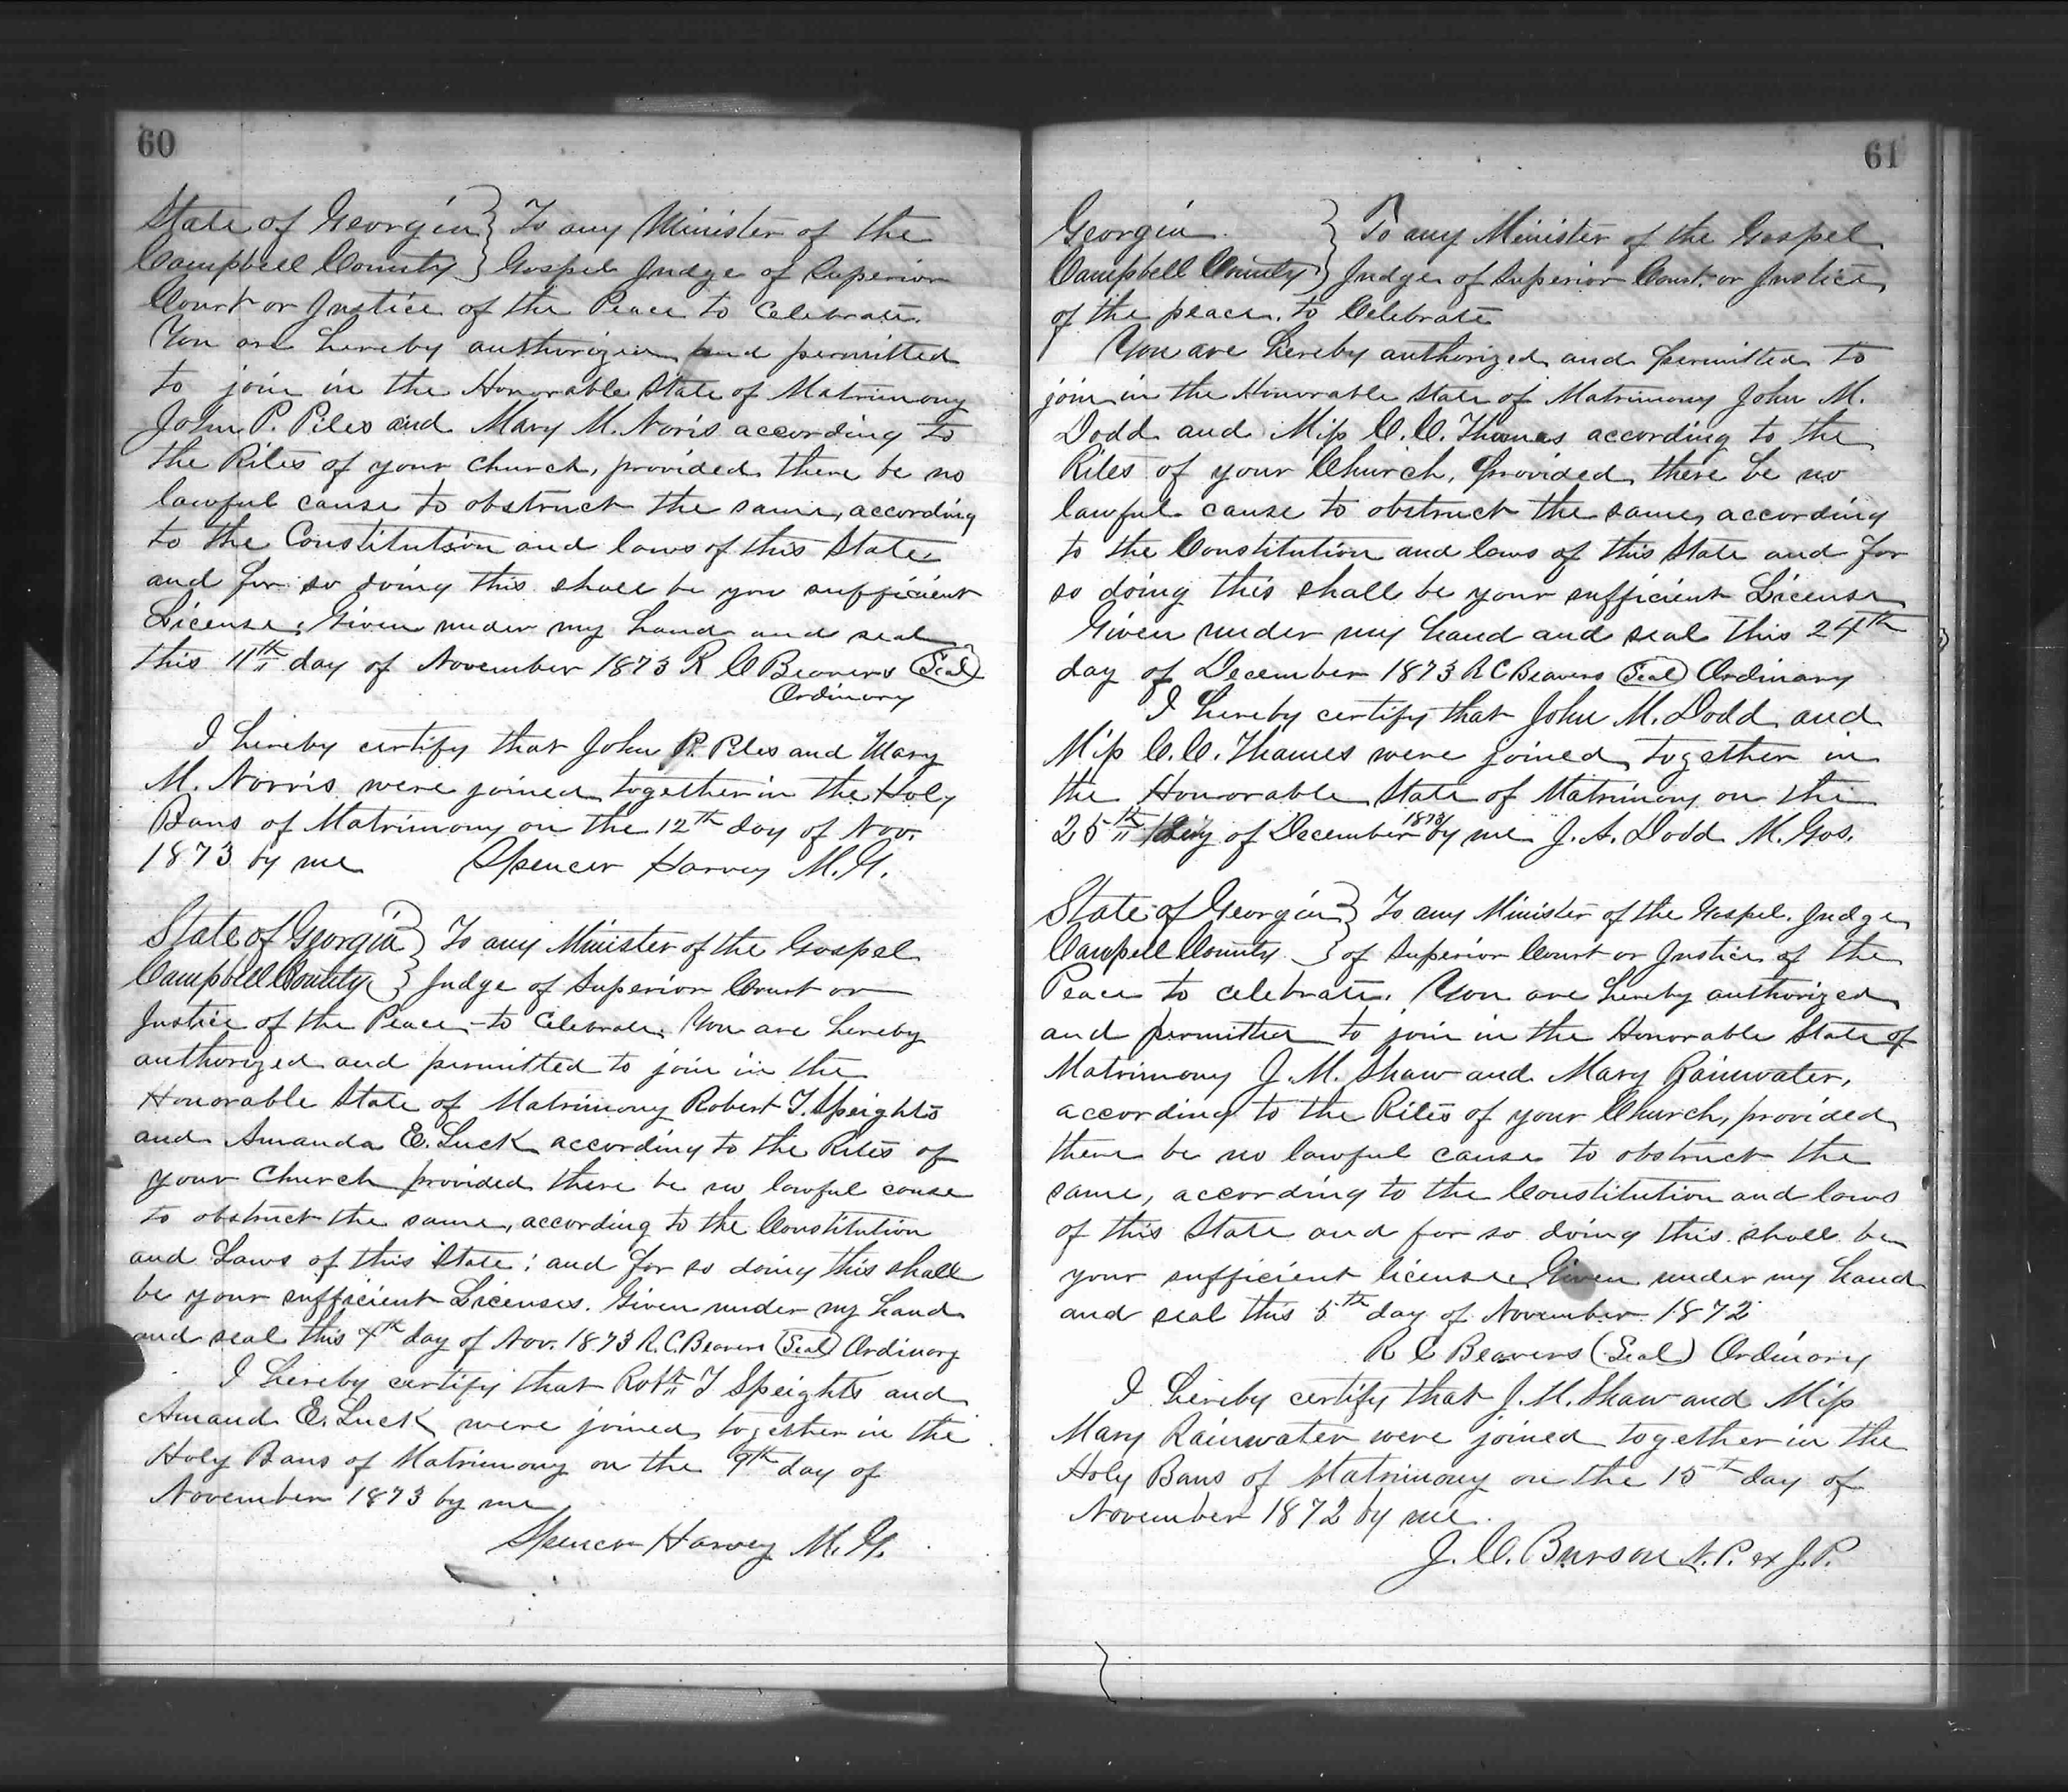 60
State of Georgia } To any Minister of the
Campbell County } Gospel Judge of Superior
Court or Justice of the Peace to Celebrate.
You are hereby authorized and permitted
to join in the Honorable State of Matrimony
John P. Piles and Mary M. Noris according to
the Rites of your church, provided there be no
lawful cause to obstruct the same, according
to the Constitution and laws of this State
and for so doing this shall be you sufficient
License. Given under my hand and seal
this 11th day of November 1873 R C Beavers (Seal)
Ordinary
I hereby certify that John P. Piles and Mary
M. Norris were joined together in the Holy
Bans of Matrimony on the 12th day of Nov.
1873 by me Spencer Harvey M.G.
State of Georgia } To any Minister of the Gospel
Campbell County } Judge of Superior Court or
Justice of the Peace to Celebrate. You are hereby
authorized and permitted to join in the
Honorable State of Matrimony Robert T. Speights
and Amanda E. Luck according to the Rites of
your Church provided there be no lawful cause
to obstruct the same, according to the Constitution
and Laws of this State; and for so doing this shall
be your sufficient Licenses. Given under my hand
and seal this 4th day of Nov. 1873 R.C. Beavers (Seal) Ordinary
I hereby certify that Robt T Speights and
Amand E. Luck were joined together in the
Holy Bans of Matrimony on the 9th day of
November 1873 by me
Spencer Harvey M.G.
61
Georgia } To any Minister of the Gospel
Campbell County } Judge of Superior Court or Justice
of the peace. to Celebrate
You are hereby authorized and permitted to
join in the Honorable State of Matrimony John M.
Dodd and Miss C.C. Thames according to the
Rites of your Church, provided there be no
lawful cause to obstruct the same, according
to the Constitution and laws of this State and for
so doing this shall be your sufficient License
Given under my hand and seal this 24th
day of December 1873 R C Beavers (Seal) Ordinary
I hereby certify that John M. Dodd and
Miss C.C. Thames were joined together in
the Honorable State of Matrimony on the
25th day of December 1873 by me J. A. Dodd M. Gos.
State of Georgia } To any Minister of the Gospel. Judge
Campell County } of Superior Court or Justice of the
Peace to celebrate. You are hereby authorized
and permitted to join in the Honorable State of
Matrimony J. M. Shaw and Mary Rainwater,
according to the Rites of your Church, provided
there be no lawful cause to obstruct the
same, according to the Constitution and laws
of this State and for so doing this shall be
your sufficient license Given under my hand
and seal this 5th day of November 1872
R C Beavers (Seal) Ordinary
I hereby certify that J. M. Shaw and Miss
Mary Rainwater were joined together in the
Holy Bans of Matrimony on the 15th day of
November 1872 by me.
J. C. Burson N.P. ex J.P.